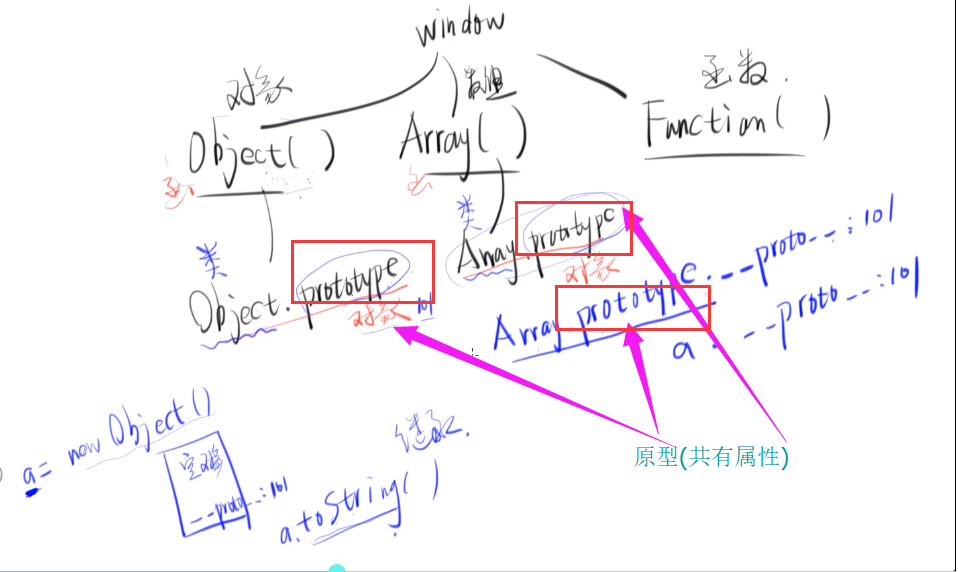 window
对象
数组
函数.
Object( )
Array( )
Function( )
函
函
类
类
Object.prototype
对象 101
Array.prototype
对象
Array.prototype.__proto__:101
a.__proto__:101
a= new Object()
空对象
__proto__:101
继承.
a.toString( )
原型(共有属性)